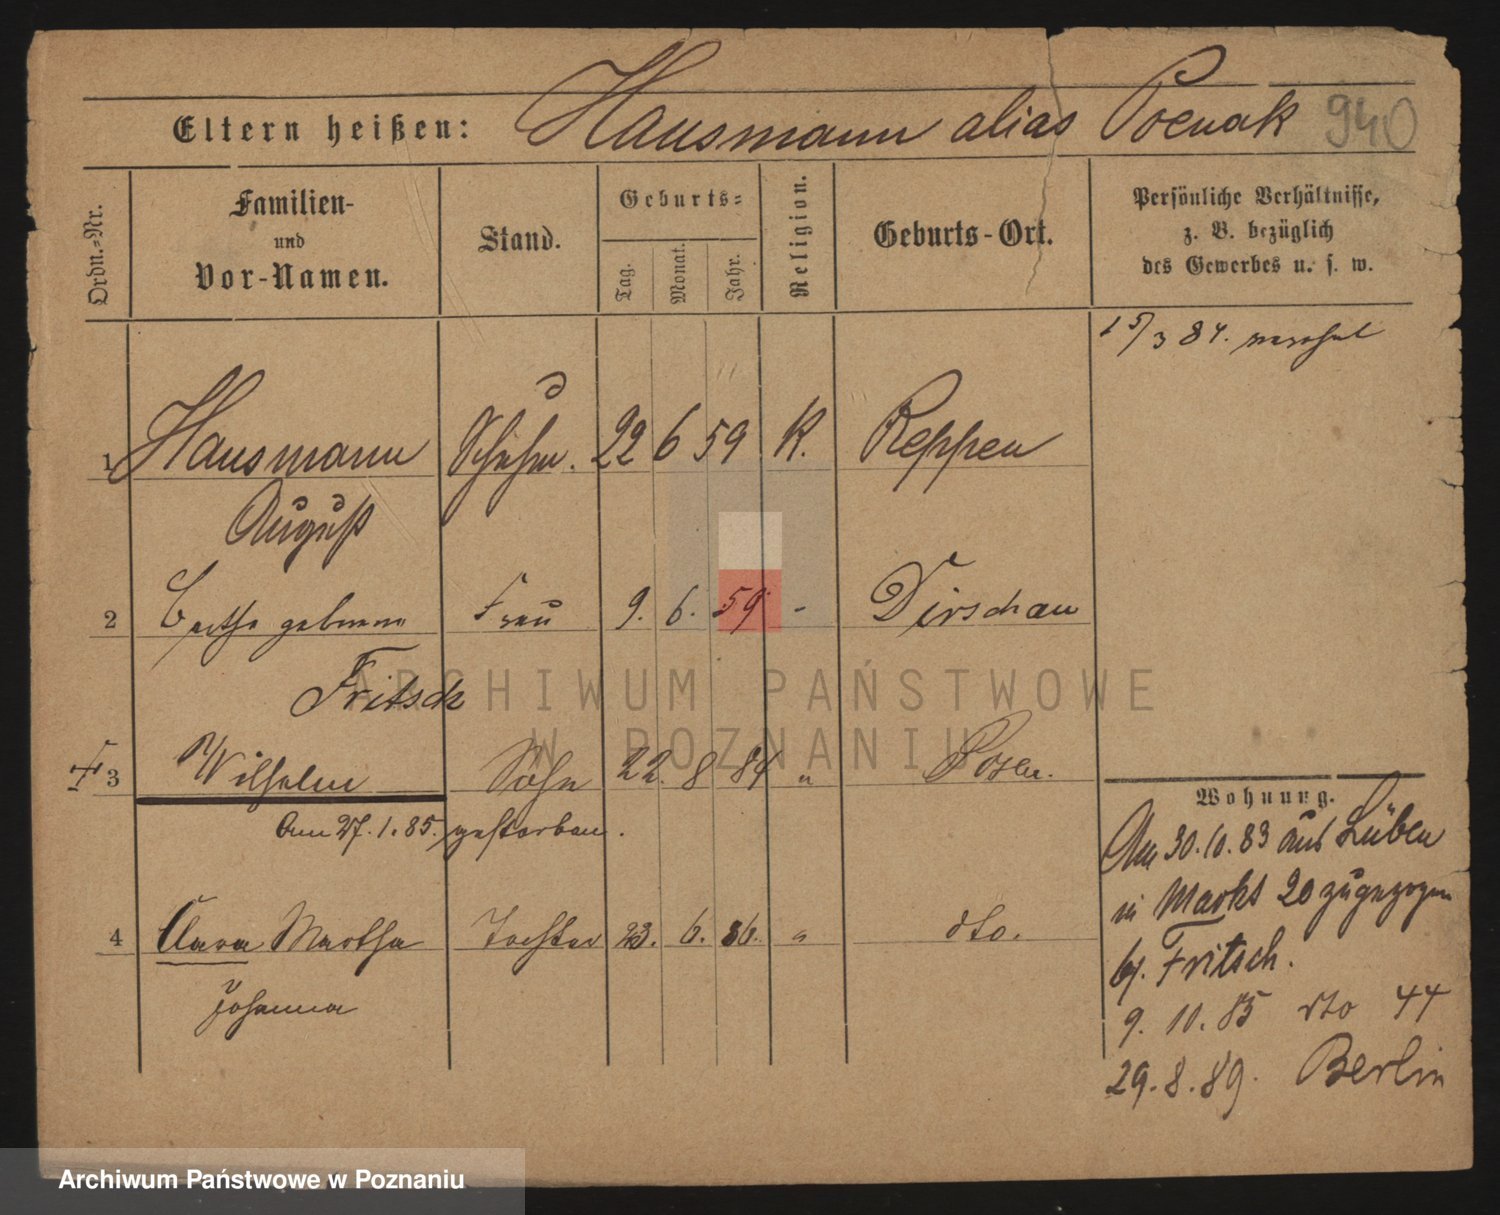 Eltern heißen: Hausmann alias Poenak 940
Ordn.-Nr.
Familien-
und
Vor-Namen.
Stand.
Geburts-
Tag.
Monat.
Jahr.
Religion.
Geburts-Ort.
Persönliche Verhältnisse,
z. B. bezüglich
des Gewerbes u. s. w.
15/3 84.
1 Hausmann 22 6 59 K. Reppen
August
2 geborene Frau 9. 6. 59 - Dirschau
Fritsch
3 Wilhelm Sohn 22. 8 84 " Posen.
Am 27.1.85. gestorben.
4 Clara Martha Tochter 23. 6. 86. " dto.
Johanna
Wohnung.
Am 30.10.83 aus Lüben
in Markt 20 zugezogen
by. Fritsch.
9. 10. 85 dto 44
29.8.89. Berlin
ARCHIWUM PAŃSTWOWE
W POZNANIU
Archiwum Państwowe w Poznaniu